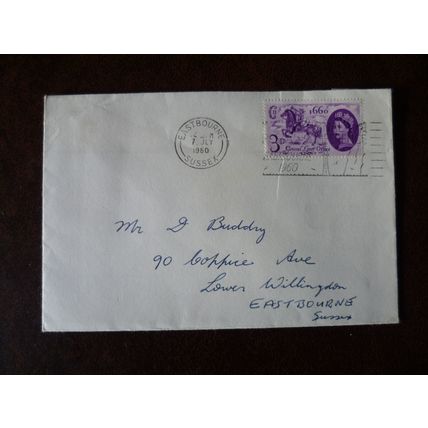 EASTBOURNE
7 JLY
1960
SUSSEX
1660
3D
General Letter Office
1960
Mr D Buddry
90 Coppice Ave
Lower Willingdon
EASTBOURNE
Sussex